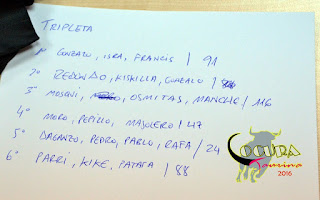 TRIPLETA
1º GONZALO, ISRA, FRANCIS / 91
2º REDONDO, KISKILLA, GONZALO /
3º MOSONI, OSMITAS, MANCHEÑO / 116
4º MORO, PEPILLO, MAJOLERO / 47
5º DAGANZO, PEDRO, PABLO, RAFA / 24
6º PARRI, KIKE, PATATA / 88
LOCURA
Taurina
2016